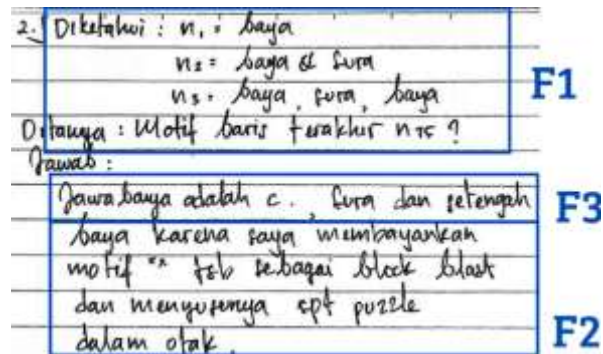 2. Diketahui : n₁ = baya
n₂ = baya & sura
n₃ = baya, sura, baya
F1
Ditanya : Motif baris terakhir n₇₅ ?
Jawab :
Jawabanya adalah c. , sura dan setengah
F3
baya karena saya membayankan
motif " tsb sebagai block blast
dan menyusunya spt puzzle
dalam otak.
F2